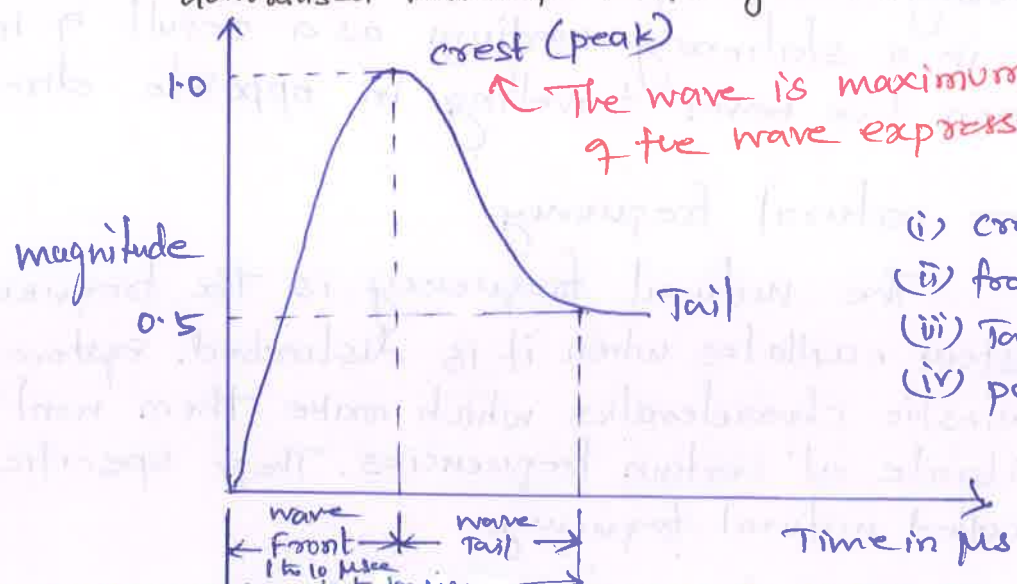 crest (peak)
1.0
The wave is maximum
of the wave express
magnitude
(i) cre
(ii) fro
(iii) Ta
(iv) po
0.5
Tail
wave
Front
wave
Tail
1 to 10 μsec
Time in μs